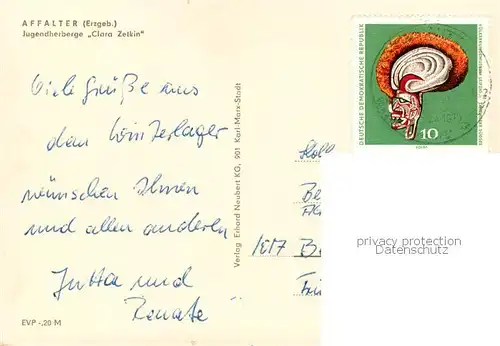 AFFALTER (Erzgeb.)
Jugendherberge „Clara Zetkin"
Viele Grüße aus
dem Winterlager
wünschen Ihnen
und allen anderen
Jutta und
Renate
EVP -,20 M
Verlag Erhard Neubert KG, 901 Karl-Marx-Stadt
DEUTSCHE DEMOKRATISCHE REPUBLIK
10
1017 B
privacy protection
Datenschutz